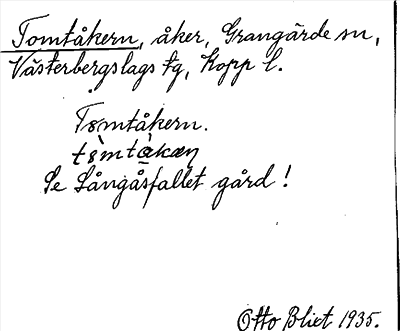 Tomtåkern, åker, Grangärde sn,
Västerbergslags tg, Kopp l.
Tomtåkern.
Se Långåsfallet gård!
Otto Blixt 1935.